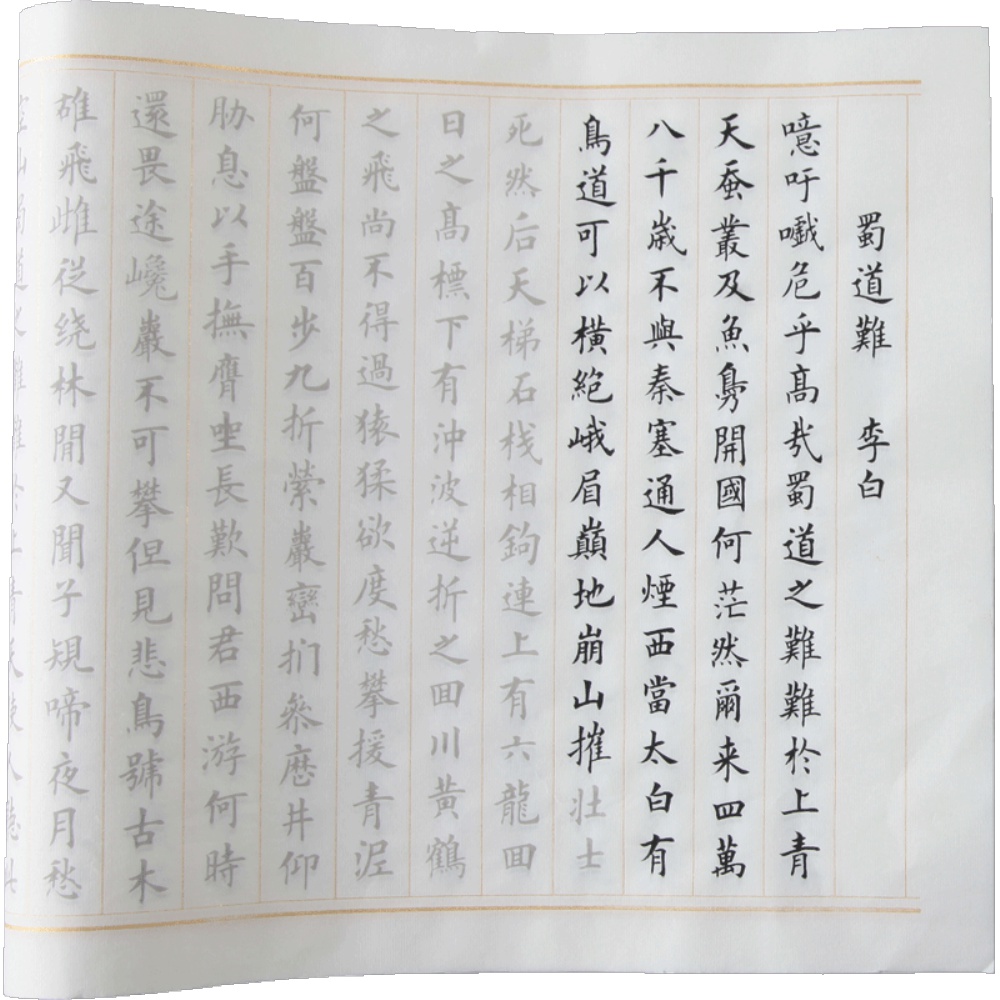 蜀道難 李白
噫吁嚱危乎髙哉蜀道之難難於上青
天蚕叢及魚鳧開國何茫然爾来四萬
八千歲不與秦塞通人煙西當太白有
鳥道可以橫絕峨眉巔地崩山摧壯士
死然后天梯石栈相鉤連上有六龍囬
日之髙標下有沖波逆折之囬川黃鶴
之飛尚不得過猿猱欲度愁攀援青泥
何盤盤百步九折縈巖巒扪參歷井仰
胁息以手撫膺坐長歎問君西游何時
還畏途巉巖不可攀但見悲鳥號古木
雄飛雌從绕林閒又聞子規啼夜月愁
空山蜀道之難難於上青天使人聽此